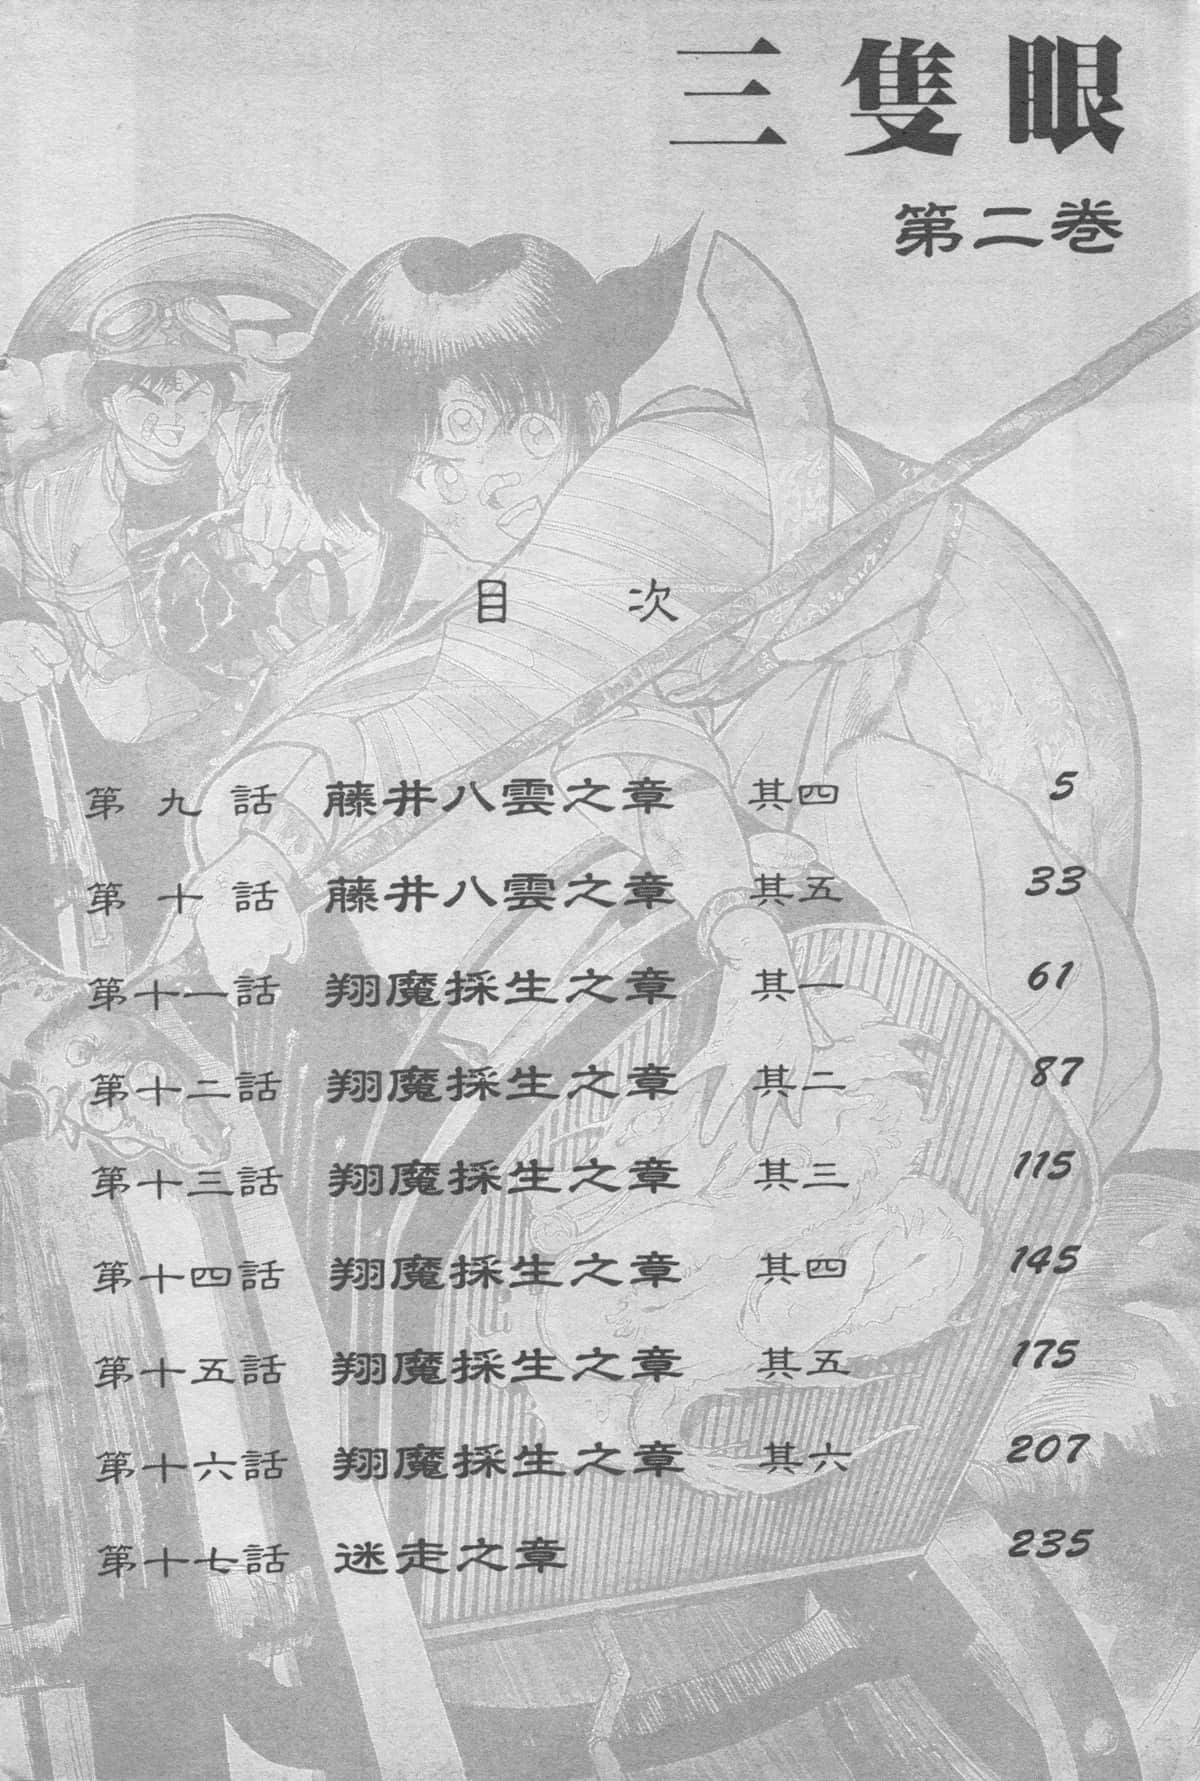 三隻眼
第二卷
目 次
第九話 藤井八雲之章 其四 5
第十話 藤井八雲之章 其五 33
第十一話 翔魔採生之章 其一 61
第十二話 翔魔採生之章 其二 87
第十三話 翔魔採生之章 其三 115
第十四話 翔魔採生之章 其四 145
第十五話 翔魔採生之章 其五 175
第十六話 翔魔採生之章 其六 207
第十七話 迷走之章 235